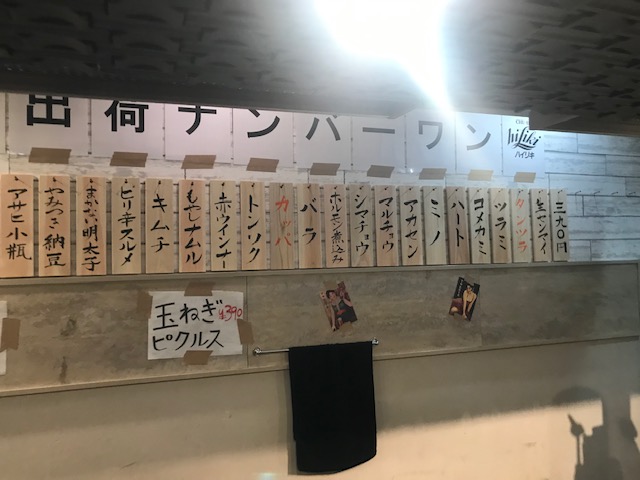 出荷ナンバーワン
ハイリキ
三九〇円
生センマイ
タンツラ
ツラミ
コメカミ
ハート
ミノ
アカセン
マルチョウ
シマチョウ
ホルモン煮込み
バラ
カッパ
トンソク
赤ウインナー
もやしナムル
キムチ
ピリ辛スルメ
まかない明太子
やみつき納豆
アサヒ小瓶
玉ねぎ ¥390
ピクルス